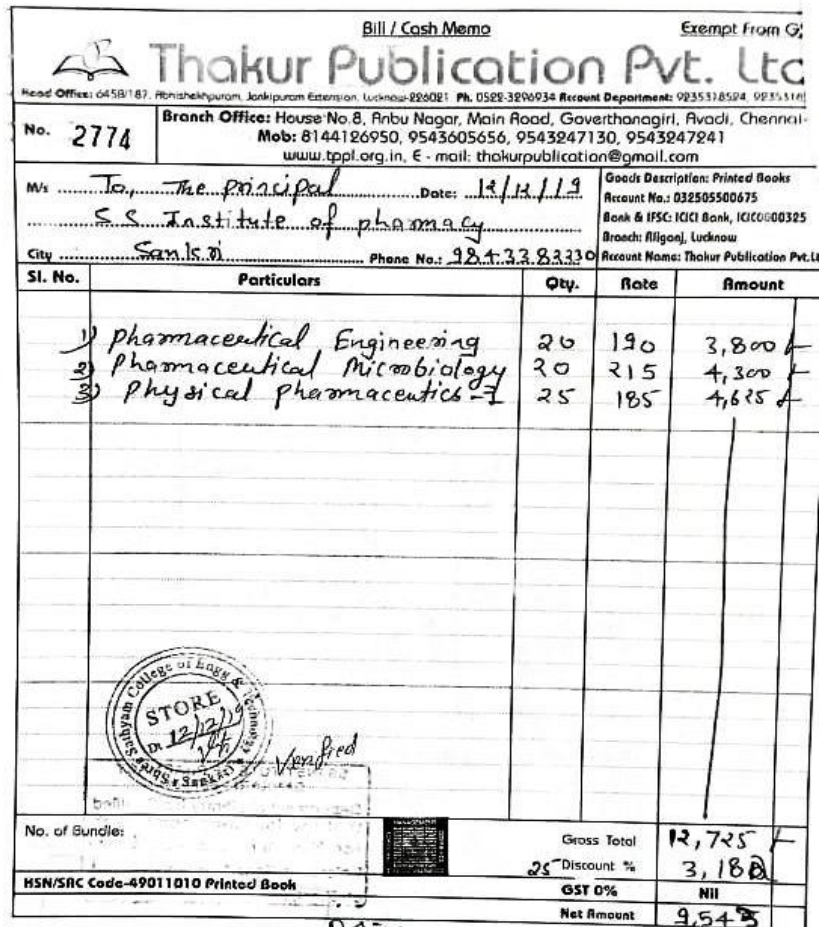 Bill / Cash Memo
Exempt From G
Thakur Publication Pvt. Ltd
Head Office: 645B/187, Abhishekhpuram, Jankipuram Extension, Lucknow-226021 Ph. 0522-3296934 Account Department: 9235318524, 9235318
No. 2774
Branch Office: House No.8, Anbu Nagar, Main Road, Goverthanagiri, Avadi, Chennai-
Mob: 8144126950, 9543605656, 9543247130, 9543247241
www.tppl.org.in, E - mail: thakurpublication@gmail.com
M/s To, The principal Date: 12/12/19
S S Institute of pharmacy
City Sankri Phone No.: 9843382230
Goods Description: Printed Books
Account No.: 032505500675
Bank & IFSC: ICICI Bank, ICIC0000325
Branch: Aliganj, Lucknow
Account Name: Thakur Publication Pvt.Lt
Sl. No. Particulars Qty. Rate Amount
1) Pharmaceutical Engineering 20 190 3,800
2) Pharmaceutical Microbiology 20 215 4,300
3) Physical pharmaceutics-I 25 185 4,625
Sathyam College of Engg & Technology
STORE
Dt 12/12/19
Sankari
Verified
No. of Bundle:
Gross Total 12,725
25 Discount % 3,182
HSN/SAC Code-49011010 Printed Book
GST 0% Nil
Net Amount 9,543